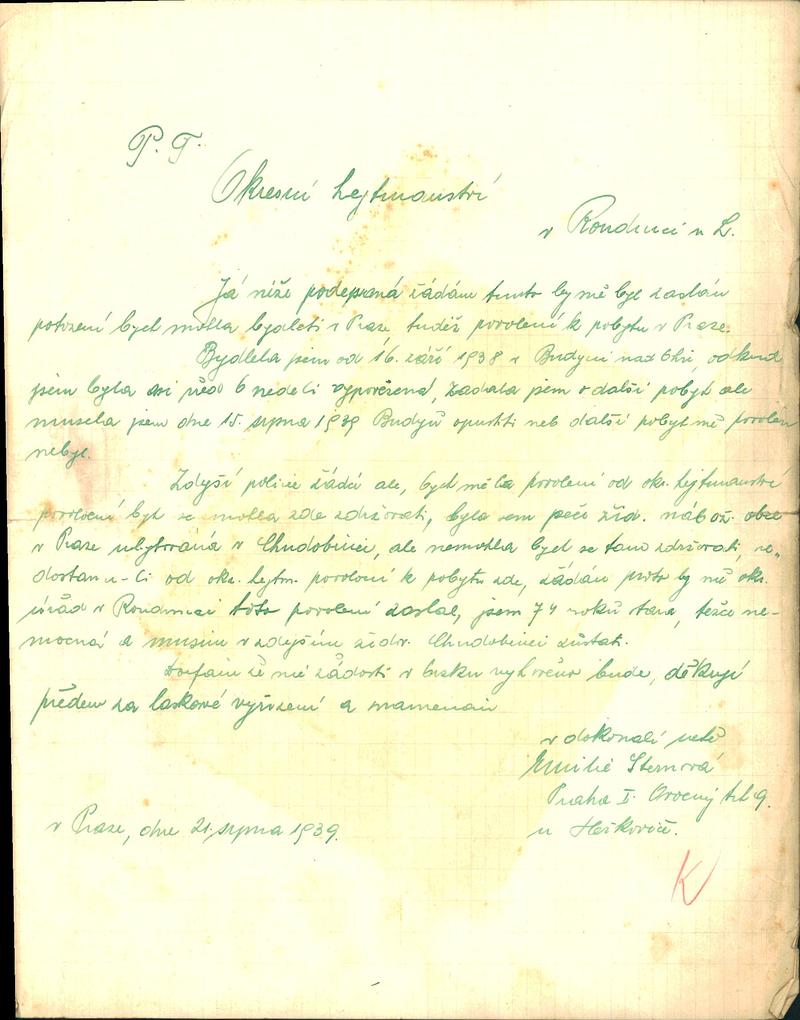 P. T.
Okresní hejtmanství
v Roudnici n L.
Já níže podepsaná žádám tímto by mě byl zaslán
potvzení bych mohla bydleti v Praze tudéž povolení k pobytu v Praze.
Bydlela jsem od 16. září 1938 v Budyni nad Ohří, odkud
jsem byla asi před 6 nedeli vypovězena, žadala jsem o další pobyt ale
musela jsem dne 15. srpna 1939 Budyň opustiti neb další pobyt mě povolen
nebyl.
Zdejší policie žádá ale, bych měla povolení od okr. hejtmanství
povolení bych se mohla zde zdržovati, byla sem péčí žid. nábož. obce
v Praze ubytována v Chudobinci, ale nemohla bych se tam zdržovati, ne-
dostanu-li od okr. hejtm. povolení k pobytu zde, žádám proto by mě okr.
úřad v Roudnici toto povolení zaslal, jsem 74 roků stará, težce ne-
mocná a musím v zdejším židv. Chudobinci zůstati.
Doufám že mé žádosti v brzku vyhověno bude, děkuji
předem za laskavé vyřízení a znamenám
v dokonalé úctě
Emilie Sternová
Praha I. Ovocný trh 9.
u Heškovič.
v Praze, dne 21. srpna 1939.
K